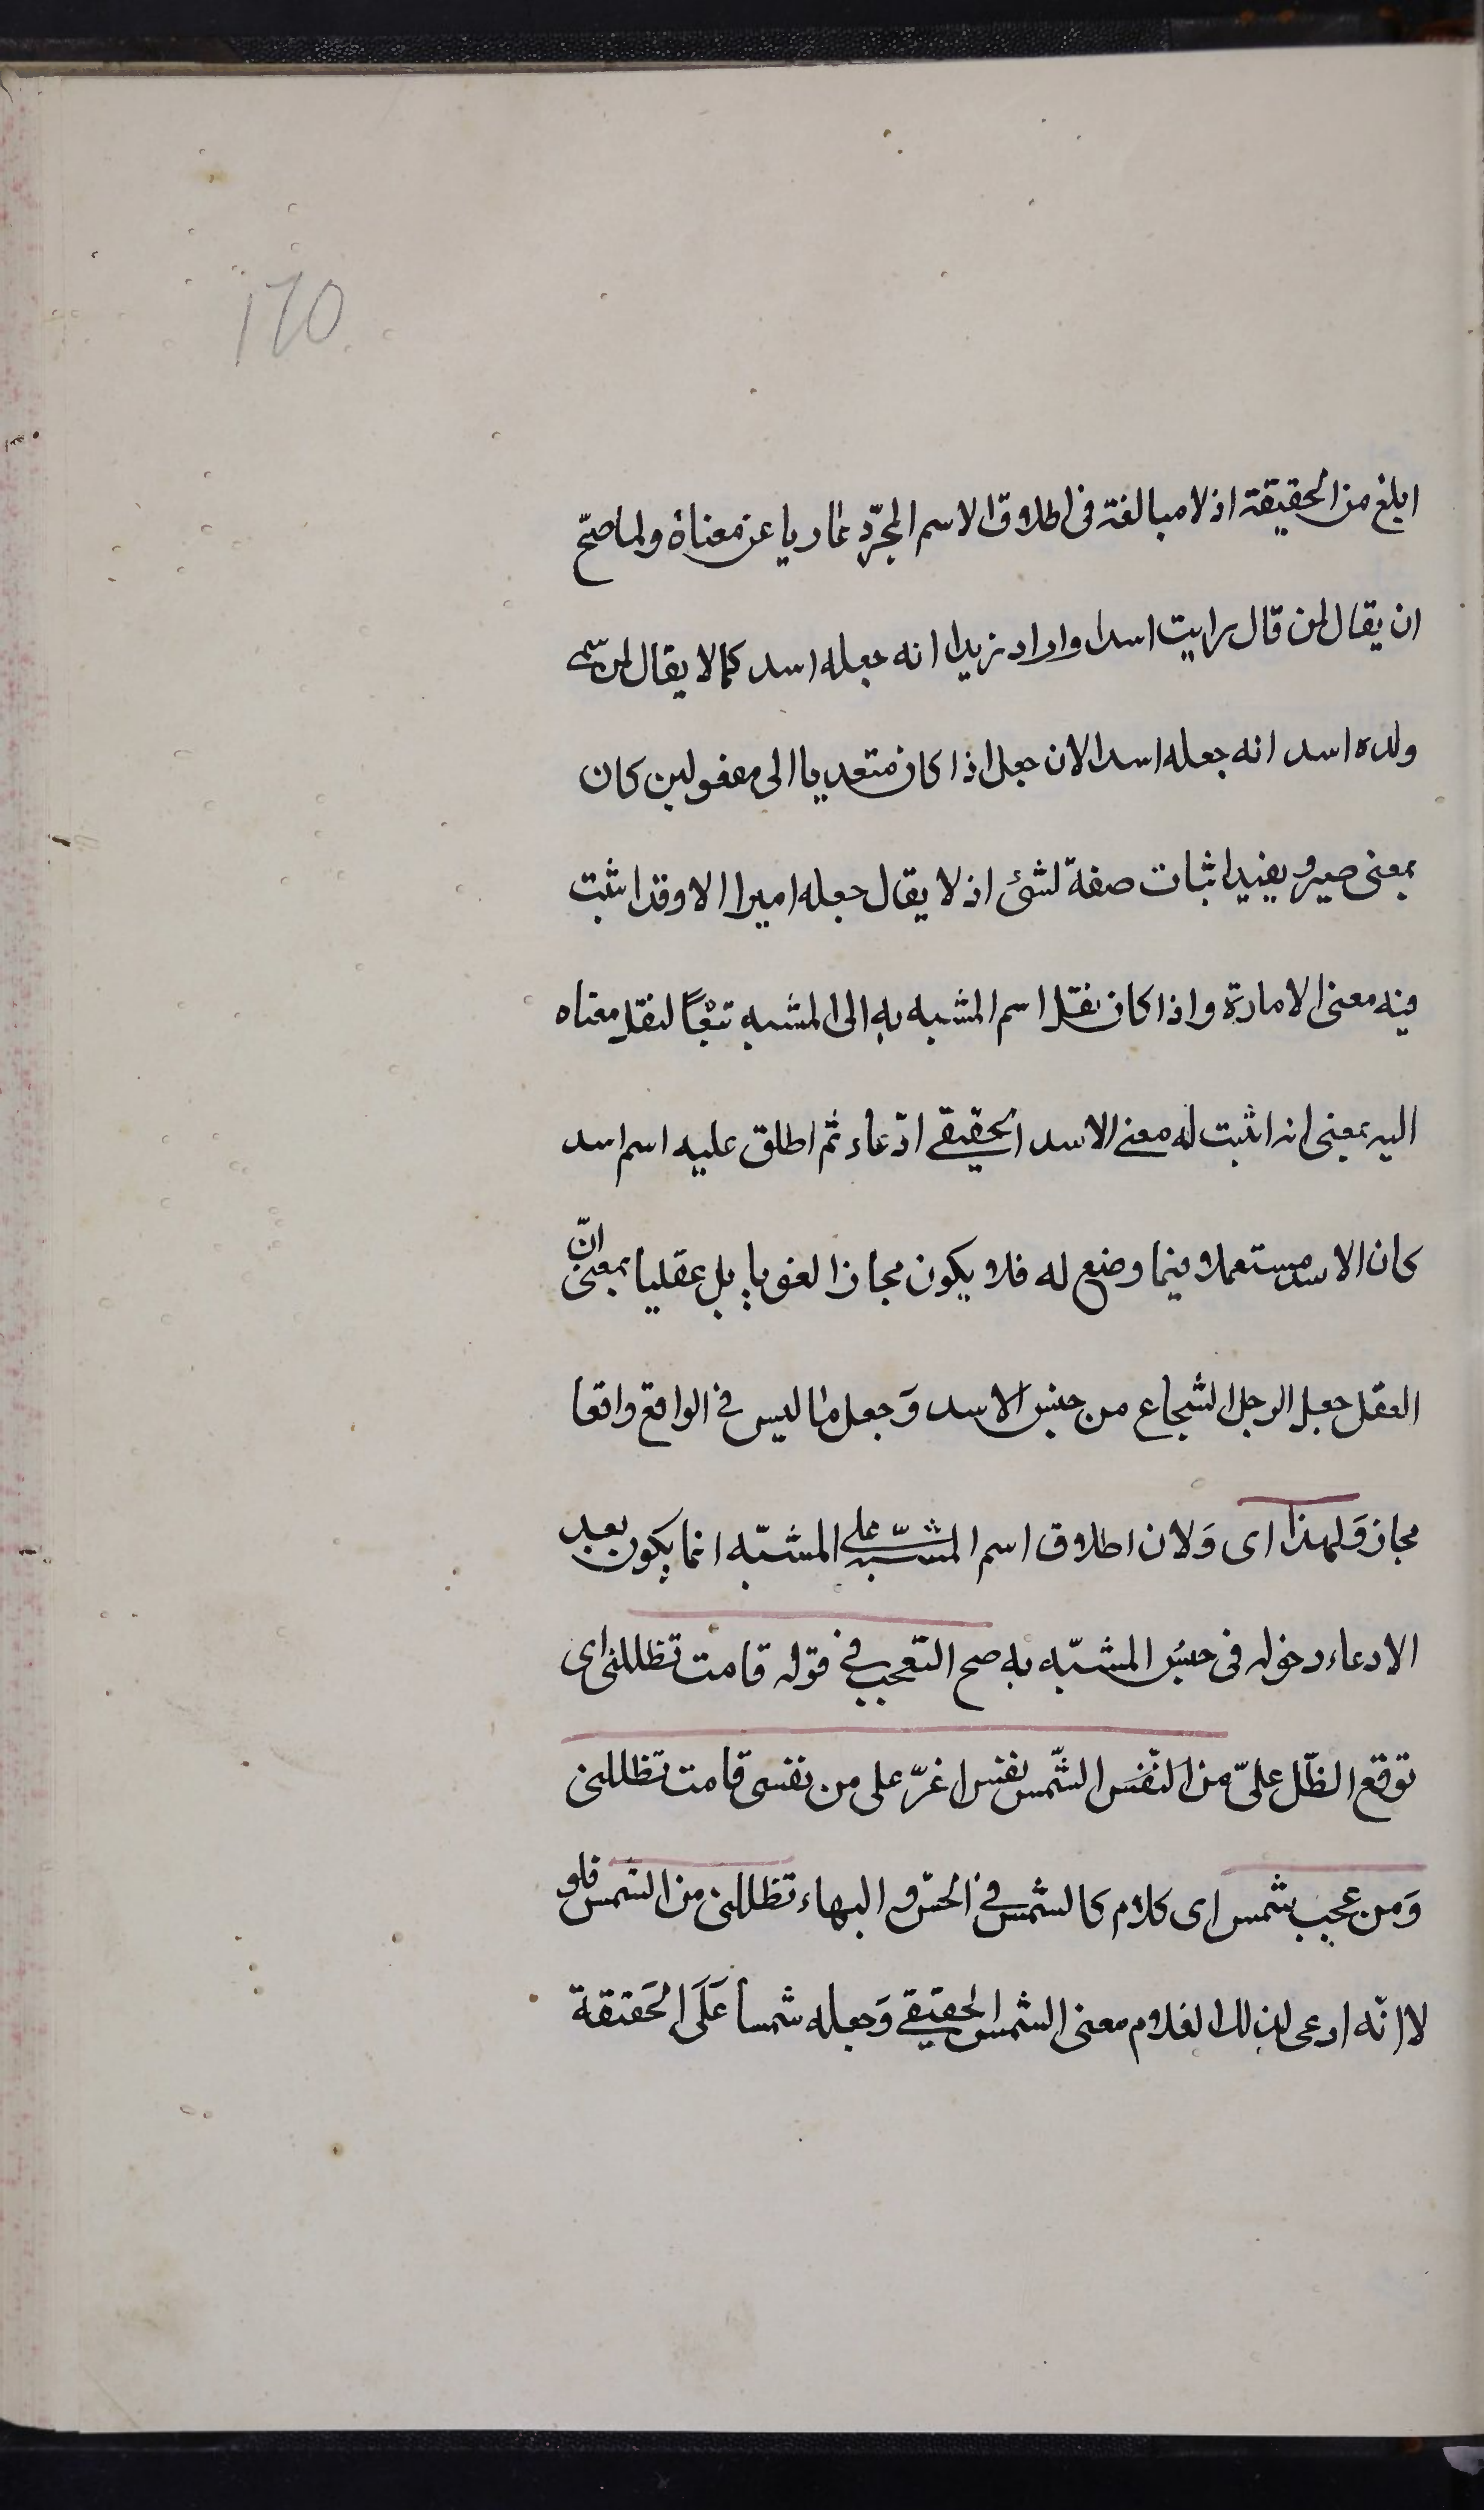 170
ابلغ من الحقيقة اذ لا مبالغة فى اطلاق الاسم المجرّد عاريا عن معناه ولما صحّ
ان يقال لمن قال رايت اسدا واراد زيدا انه جعله اسد كما لا يقال لمن سمى
ولده اسد انه جعله اسدا لان جعل اذا كان متعديا الى مفعولين كان
بمعنى صير ويفيد اثبات صفة لشئ اذ لا يقال جعله اميرا الا وقد اثبت
فيه معنى الامارة واذا كان نقل اسم المشبه به الى المشبه تبعًا لنقل معناه
اليه بمعنى انه اثبت له معنى الاسد الحقيقى ادّعاء ثم اطلق عليه اسم اسد
كان الاسد مستعملا فيما وضع له فلا يكون مجازا لغويا بل عقليا بمعنى انّ
العقل جعل الرجل الشجاع من جنس الاسد وَجعل ما ليس فى الواقع واقعا
مجاز وَلهذا اى وَلان اطلاق اسم المشبّه على المشبّه انما يكون بعد
الادعاء دخوله فى جنس المشبّه به صح التعجب فى قوله قامت تظللنى اى
توقع الظّل علىّ من النّفسَ الشّمس نفس اعزّ على من نفسى قامت تظللنى
وَمن عجب شمس اى كلام كالشمس فى الحسن والبهاء تظللنى من الشمس فلو
لا انّه ادعى لذلك الغلام معنى الشمس الحقيقى وَجعله شمسا عَلَى الحَقيقة